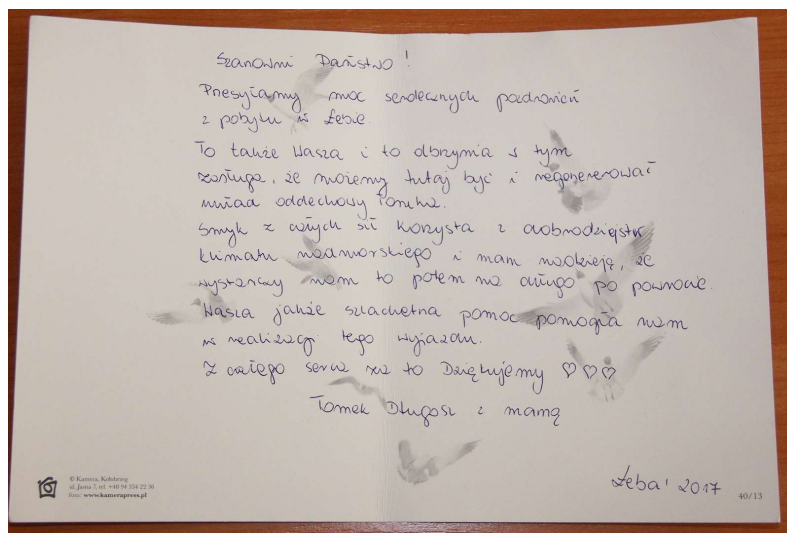 Szanowni Państwo!
Przesyłamy moc serdecznych pozdrowień
z pobytu w Łebie.
To także Wasza i to olbrzymia w tym
zasługa, że możemy tutaj być i regenerować
układ oddechowy Tomka.
Smyk z całych sił korzysta z dobrodziejstw
klimatu nadmorskiego i mam nadzieję, że
wystarczy nam to potem na długo po powrocie.
Wasza jakże szlachetna pomoc pomogła nam
w realizacji tego wyjazdu.
Z całego serca za to Dziękujemy ♡♡♡
Tomek Długosz z mamą
Łeba' 2017
© Kamera, Kołobrzeg
ul. Jasna 7, tel. +48 94 354 22 36
foto: www.kamerapress.pl
40/13